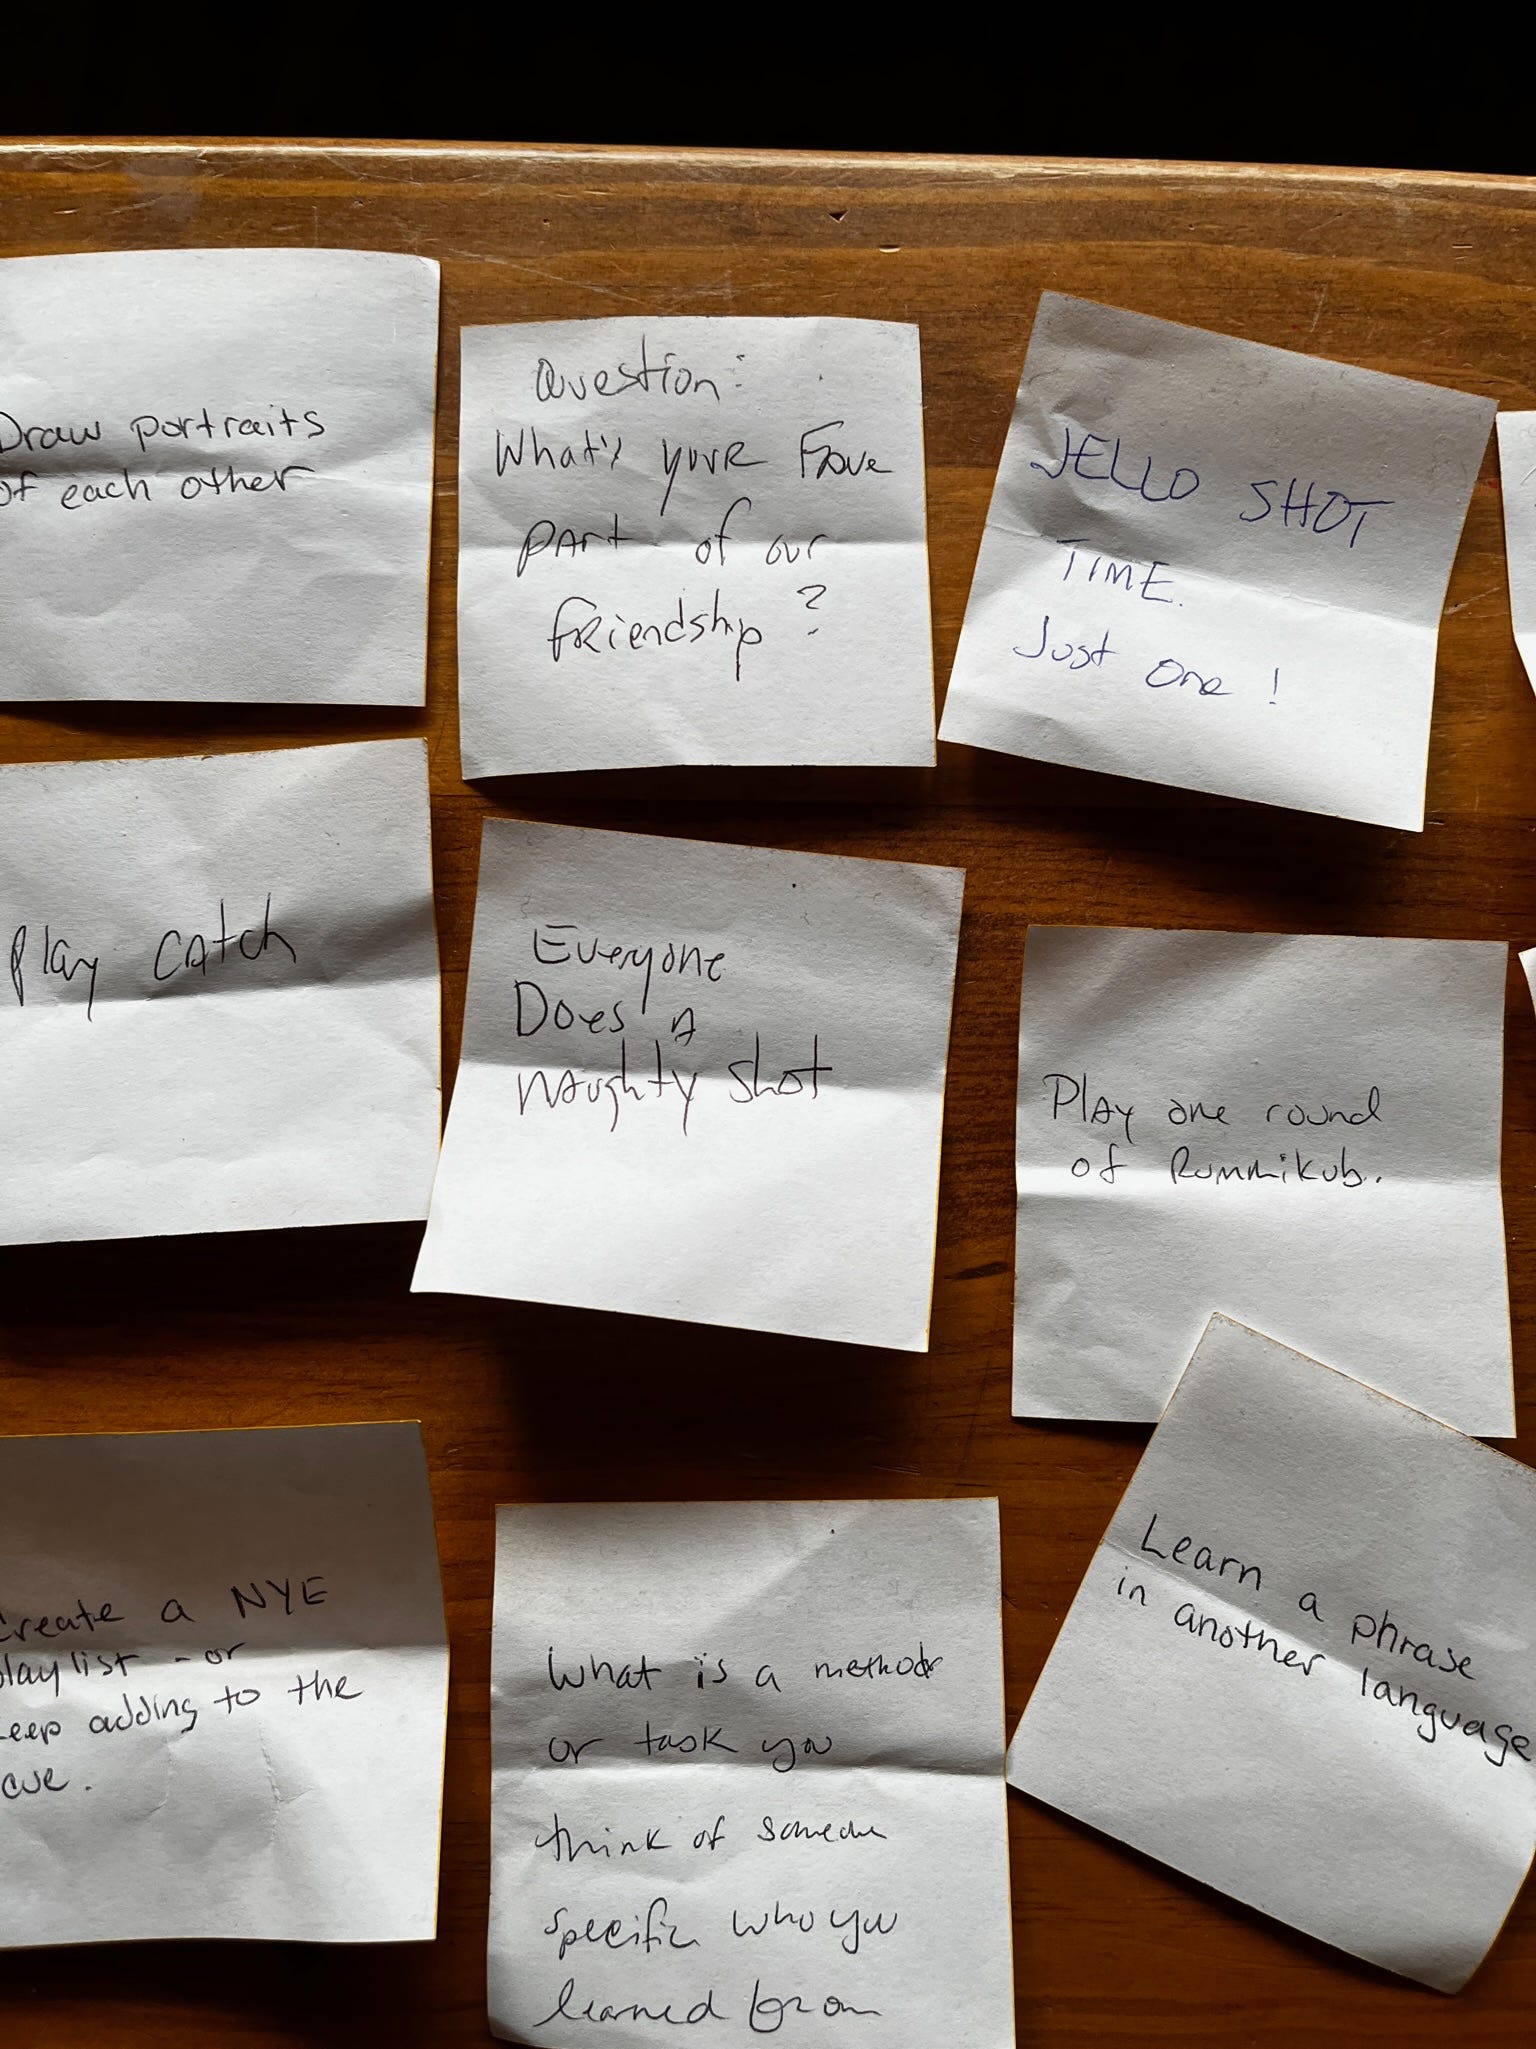 Draw portraits
of each other
Question:
What's your Fave
part of our
friendship?
JELLO SHOT
TIME.
Just one!
Play catch
Everyone
Does a
naughty shot
Play one round
of Rummikub..
Create a NYE
playlist - or
keep adding to the
What is a method
or task you
think of someone
specific who you
learned from
Learn a phrase
in another language